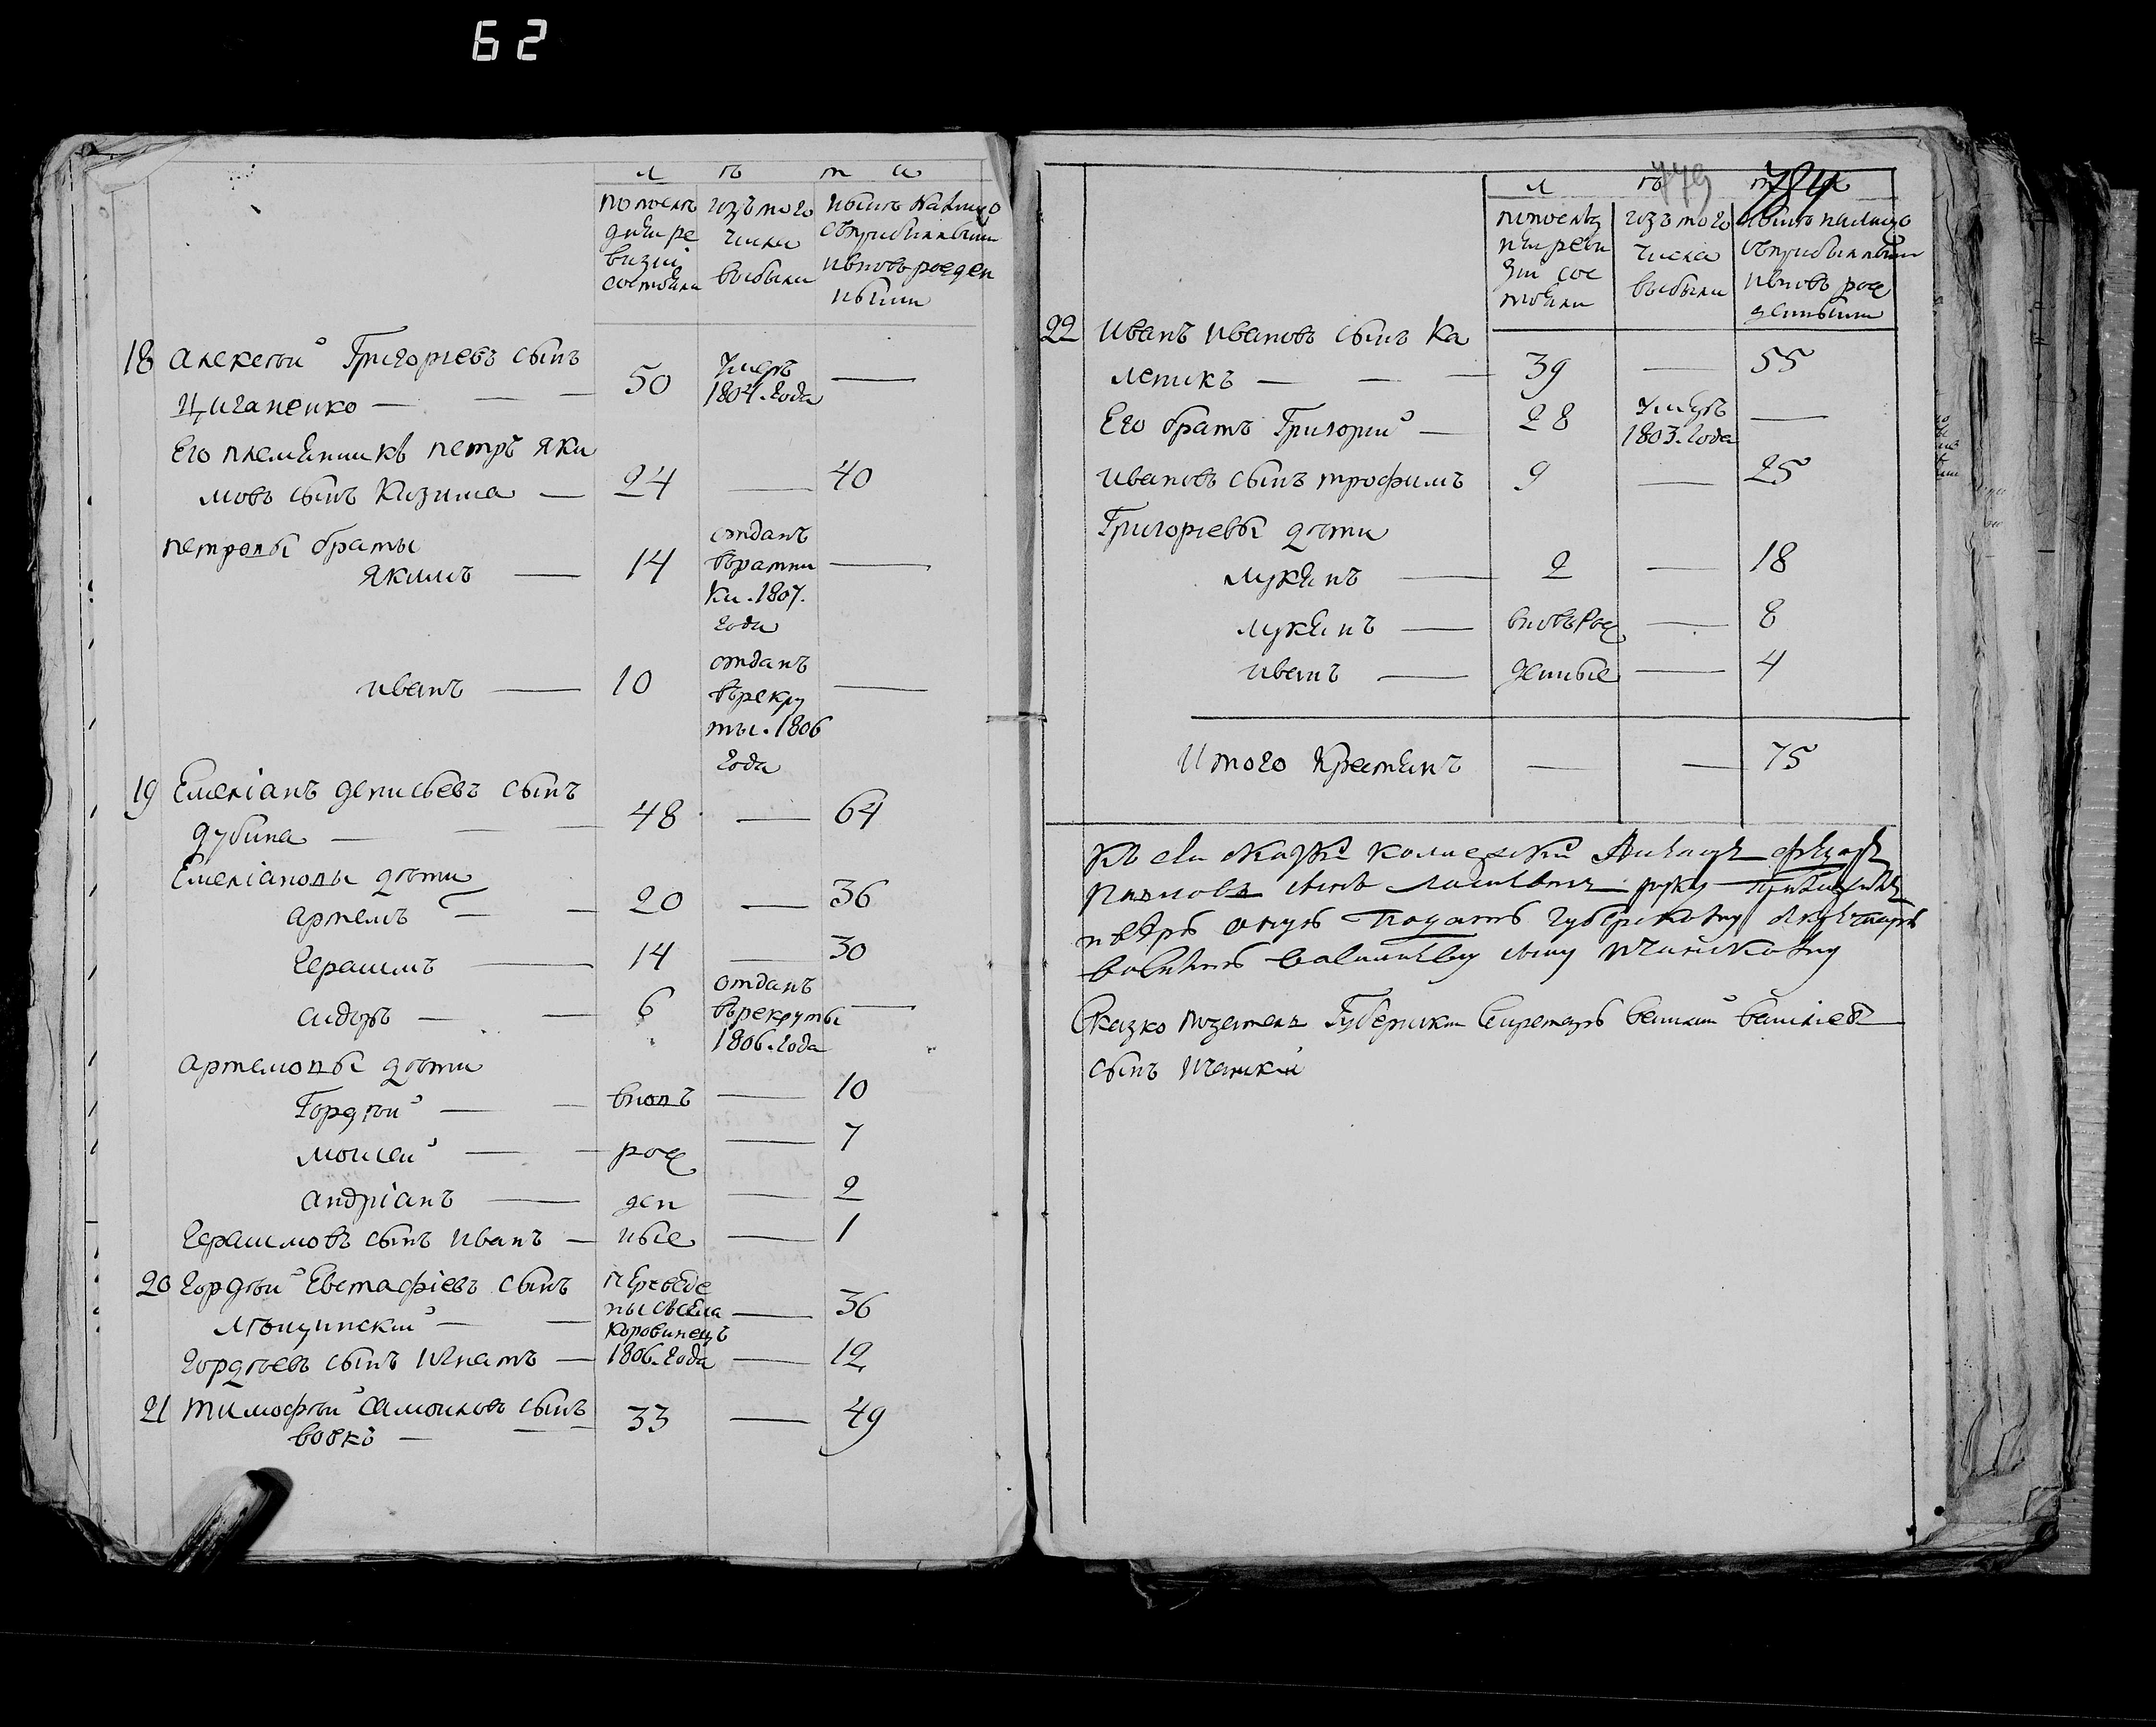 62
л ѣ т а
по послѣ
дней ре
визіи
состояли
изъ того
числа
выбыли
ныне налицо
съприбылыми
ивновь рожден
ными
18 алексѣй Григорьевъ сынъ
Циганенко — 50 умеръ 1804. года —
Его племянникъ петръ яки
мовъ сынъ Кизима — 24 — 40
петровы братья
якимъ — 14 отданъ въратни
ки. 1807. года —
иванъ — 10 отданъ
върекру
ты. 1806
года —
19 Емеліанъ денисьевъ сынъ
дубина — 48 — 64
Емеліановы дѣти
артемъ — 20 — 36
герасимъ — 14 — 30
сидоръ — 6 отданъ
върекруты
1806. года —
артемовы дѣти
Гордѣй — вновь — 10
моисей — рож — 7
андріанъ — ден — 2
герасимовъ сынъ иванъ — ные — 1
20 гордѣй Евстафіевъ сынъ
Лѣщинскій — переведе
ны съсела
коровинецъ
1806. года — 36
гордѣевъ сынъ игнатъ — 12
21 тимофѣй самоиловъ сынъ
вовкъ — 33 — 49
779
л ѣ т а
попослѣд
ней реви
зіи сос
тояли
изъ того
числа
выбыли
ныне налицо
съприбылыми
ивновь рож
денными
22 иванъ ивановъ сынъ Ка
леникъ — 39 — 55
Его братъ Григорій — 28 умеръ
1803. года —
ивановъ сынъ трофимъ 9 — 25
Григорьевы дѣти
лукянъ — 2 — 18
лукянъ — вновь Рож — 8
иванъ — денные — 4
Итого Крестянъ — — 75
Къ сей сказки
сынъ руку
подать губернскому
сыну
Сказко подателъ Губернски Секретаръ василій василіевъ
сынъ